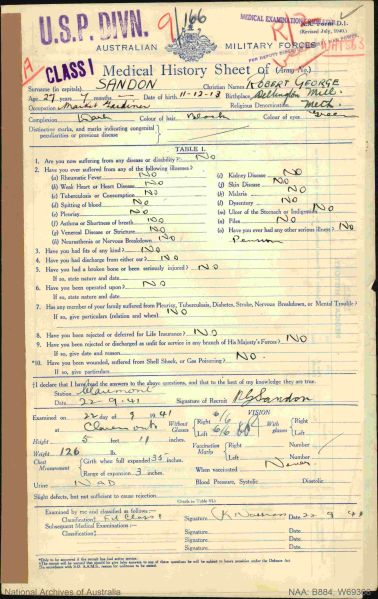 U.S.P. DIVN.
9/166
MEDICAL EXAMINATION
A.A. Form D.1.
(Revised July, 1940.)
AUSTRALIAN MILITARY FORCES
A
CLASS I
Medical History Sheet of (Army No.)
Surname (in capitals) SANDON Christian Names ROBERT GEORGE
Age 27 years 9 months Date of birth 11-12-13 Birthplace Mill.
Occupation Market Gardener Religious Denomination Meth.
Complexion Dark Colour of hair Black Colour of eyes Green
Distinctive marks, and marks indicating congenital
peculiarities or previous disease
TABLE I.
1. Are you now suffering from any disease or disability? No
2. Have you ever suffered from any of the following illnesses?
(a) Rheumatic Fever No
(b) Weak Heart or Heart Disease No
(c) Tuberculosis or Consumption No
(d) Spitting of blood No
(e) Pleurisy No
(f) Asthma or Shortness of breath No
(g) Venereal Disease or Stricture No
(h) Neurasthenia or Nervous Breakdown No
(i) Kidney Disease No
(j) Skin Disease No
(k) Malaria No
(l) Dysentery No
(m) Ulcer of the Stomach or Indigestion No
(n) Piles No
(o) Have you ever had any other serious illness? No
3. Have you had fits of any kind? No
4. Have you had discharge from either ear? No
5. Have you had a broken bone or been seriously injured? No
If so, state nature and date
6. Have you been operated upon? No
If so, state nature and date
7. Has any member of your family suffered from Pleurisy, Tuberculosis, Diabetes, Stroke, Nervous Breakdown, or Mental Trouble?
If so, give particulars (relation and when) No
8. Have you been rejected or deferred for Life Insurance? No
9. Have you been rejected or discharged as unfit for service in any branch of His Majesty's Forces? No
If so, give date and reason
*10. Have you been wounded, suffered from Shell Shock, or Gas Poisoning? No.
If so, give particulars
†I declare that I have read the answers to the above questions, and that to the best of my knowledge they are true.
Station Claremont
Date 22-9-41 Signature of Recruit RG Sandon
Examined on 22 day of 9 1941
at Claremont
Height 5 feet 11 inches
Weight 126 lb.
Chest Measurement
Girth when fully expanded 35 inches
Range of expansion 3 inches
Urine NAD
VISION
Without Glasses Right 6/6 Left 6/6
With glasses Right Left
Vaccination Marks Right Number Left Number
When vaccinated Never
Blood Pressure, Systolic Diastolic
Slight defects, but not sufficient to cause rejection
(Details in Table VI.)
Examined by me and classified as follows:—
Classification Fit Class I Signature Date 22 9 41
Subsequent Medical Examinations:—
Classification Signature Date
Signature Date
Signature Date
*Only to be answered if the recruit has had active service.
†The recruit will be warned that should he give false answers to any of these questions he will be subject to future penalties under the Defence Act.
National Archives of Australia
NAA: B884, W69366